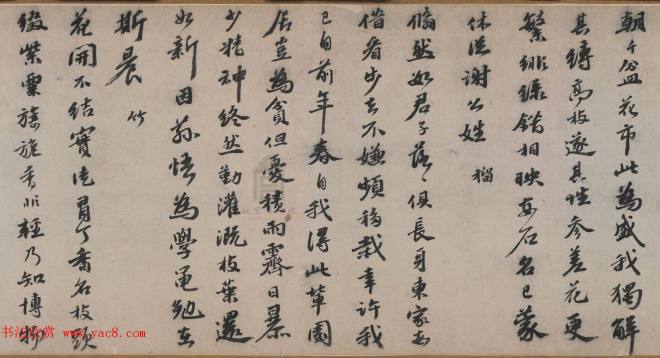 朝千盆花市此為盛我獨解
其縛高枝遂其性參差花更
繁緋綠錯相映安石名已蒙
休從謝公姓 榴
翛然如君子落〻俱長身東家
借看步〻不嫌頻移栽幸許我
已自前年春自我得此輩園
居豈為貧但憂積雨霽日暴
少精神終然勤灌溉枝葉還
如新因茲悟為學黽勉在
斯晨 竹
花開不結實徒冒丁香名枝頭
綴紫粟旖旎香非輕乃知博物
书法欣赏 www.yac8.com